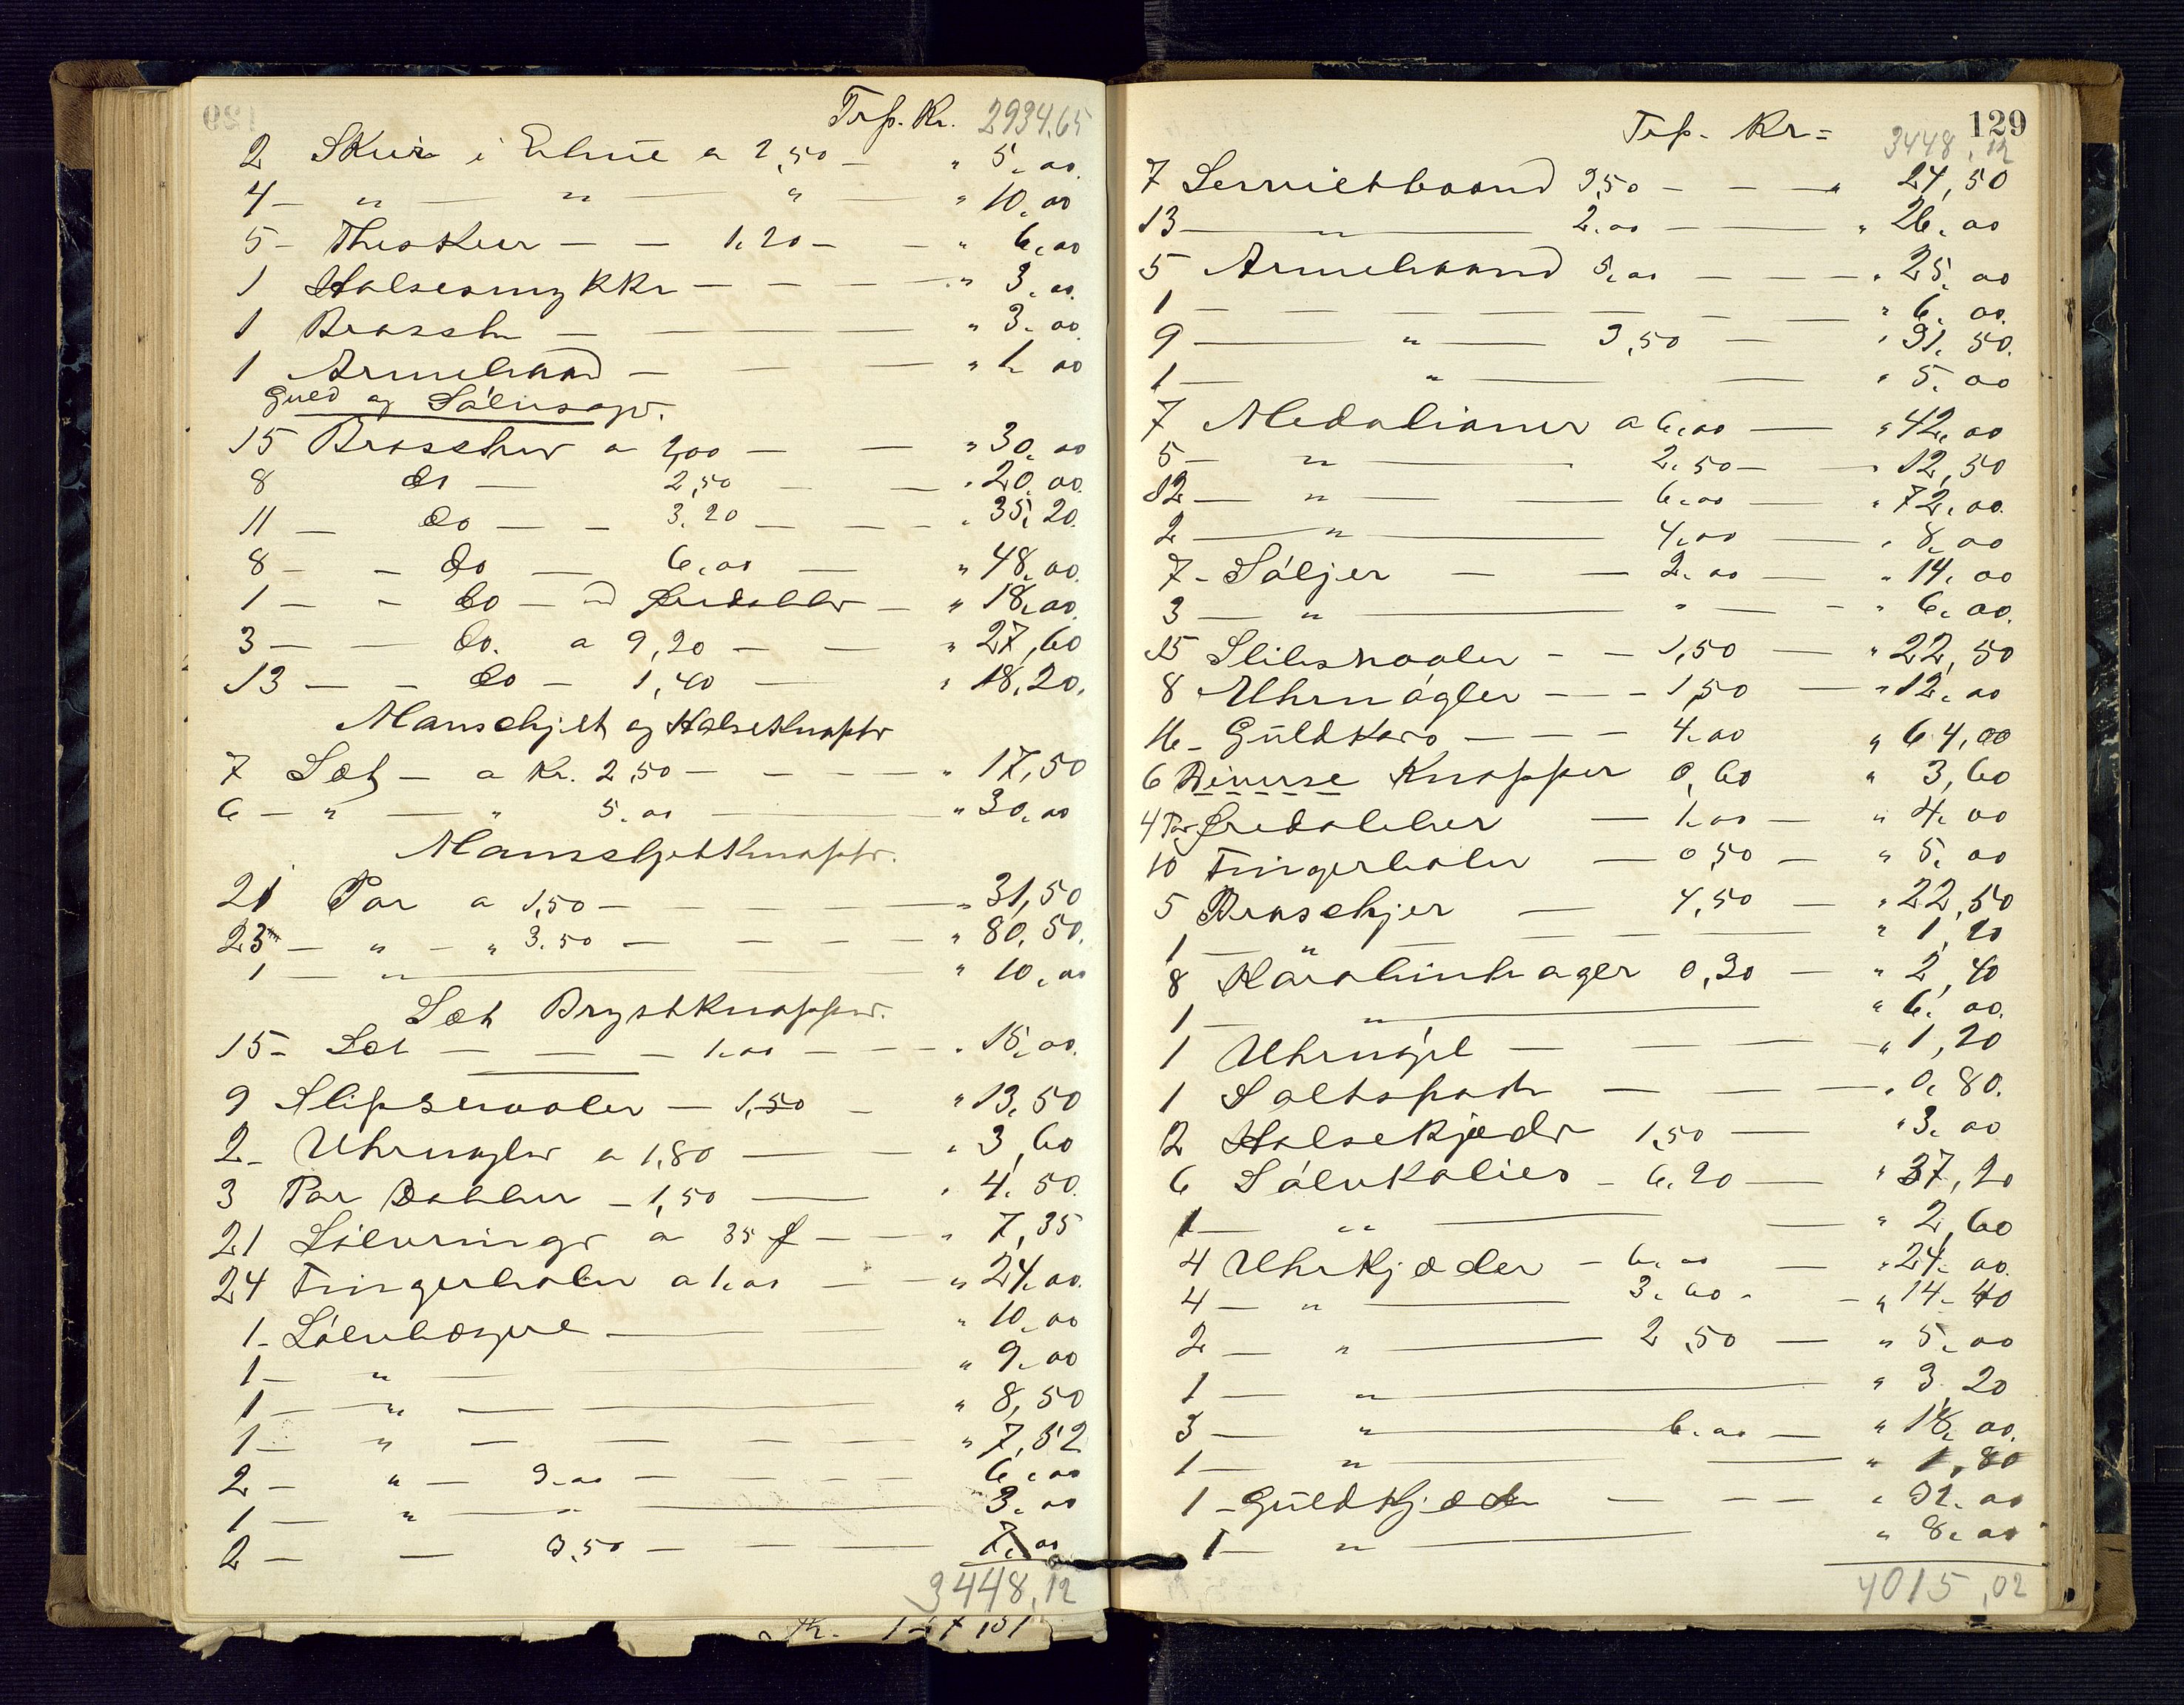 Trp. Kr. 2934,65
2 Skeer i Etuie a 2,50 — " 5,00
4 — " — " — " — " 10,00
5 - Theskeer — — 1,20 — — " 6,00
1 Halsesmykke — — — — " 3,00
1 Brosche — — — " 3,00
1 Armbaand — — — " 1,00
Guld og Sølvsager.
15 Broscher a 2,00 — — " 30,00
8 do — 2,50 — — " 20,00
11 — do — — 3,20 — — — " 35,20
8 — — do — 6,00 — " 48,00
1 — — do — Øredobber — " 18,00
3 — — do. a 9,20 — — " 27,60
13 — — do — 1,40 — " 18,20
Manschjet og Halseknapper
7 Sæt — a Kr. 2,50 — — — — " 17,50
6 — " — " 5,00 — " 30,00
Manschjetknapper.
21 Par a 1,50 — — — — " 31,50
23 — " — " 3,50 — — — — " 80,50
1 — " — " 10,00
Sæt Brystknapper.
15 - Sæt — — — 1,00 — — — " 15,00
9 Slipsenaaler — 1,50 — " 13,50
2 - Uhrnøgler a 1,80 — — " 3,60
3 Par Dobber — 1,50 — " 4,50
21 Sølvringe a 35 ø — — — " 7,35
24 Fingerbøler a 1,00 — — " 24,00
1 - Sølvbæger — " 10,00
1 — " — " 9,00
1 — " — " 8,50
1 — " — — — — " 7,52
2 — " — 3,00 — — — — 6,00
1 — " — " — 3,00
2 — — 3,50 — — — — 7,00
3448,12
129
Trp. Kr =
3448,12
7 Servietbaand 3,50 — — — " 24,50
13 — " — 2,00 — — " 26,00
5 Armbaand 5,00 — — — " 25,00
1 — — — — — — — " 6,00
9 — " — 3,50 — " 31,50
1 — " — — " 5,00
7 Medalioner a 6,00 — " 42,00
5 — " — 2,50 — — " 12,50
12 — " — — 6,00 — " 72,00
2 — " — 4,00 — " 8,00
7 - Søljer — — 2,00 — " 14,00
3 — " — " — — " 6,00
15 Slibsnaaler — — 1,50 — " 22,50
8 Uhrnøgler — — 1,50 — " 12,00
16 - Guldkors — — — 4,00 " 64,00
6 Diverse Knapper 0,60 " 3,60
4 Par Øredobber — 1,00 — " 4,00
10 Fingerbøler — 0,50 — " 5,00
5 Broschjer — 4,50 — " 22,50
1 — " — — — — " 1,20
8 Karabinhager 0,30 — " 2,40
1 — " — " 6,00
1 Uhrnøgel — — — — " 1,20
1 Saltspade — — — " 0,80
2 Halsekjæder 1,50 — " 3,00
6 Sølvkolies — 6,20 — " 37,20
1 — " — — " 2,60
4 Uhrkjæder — 6,00 — " 24,00
4 — " — 3,60 - — " 14,40
2 — " — 2,50 — " 5,00
1 — " — " 3,20
3 — " — 6,00 — " 18,00
1 — " — — " 1,80
1 - Guldkjæde — — — " 32,00
1 — " — " 8,00
4015,02